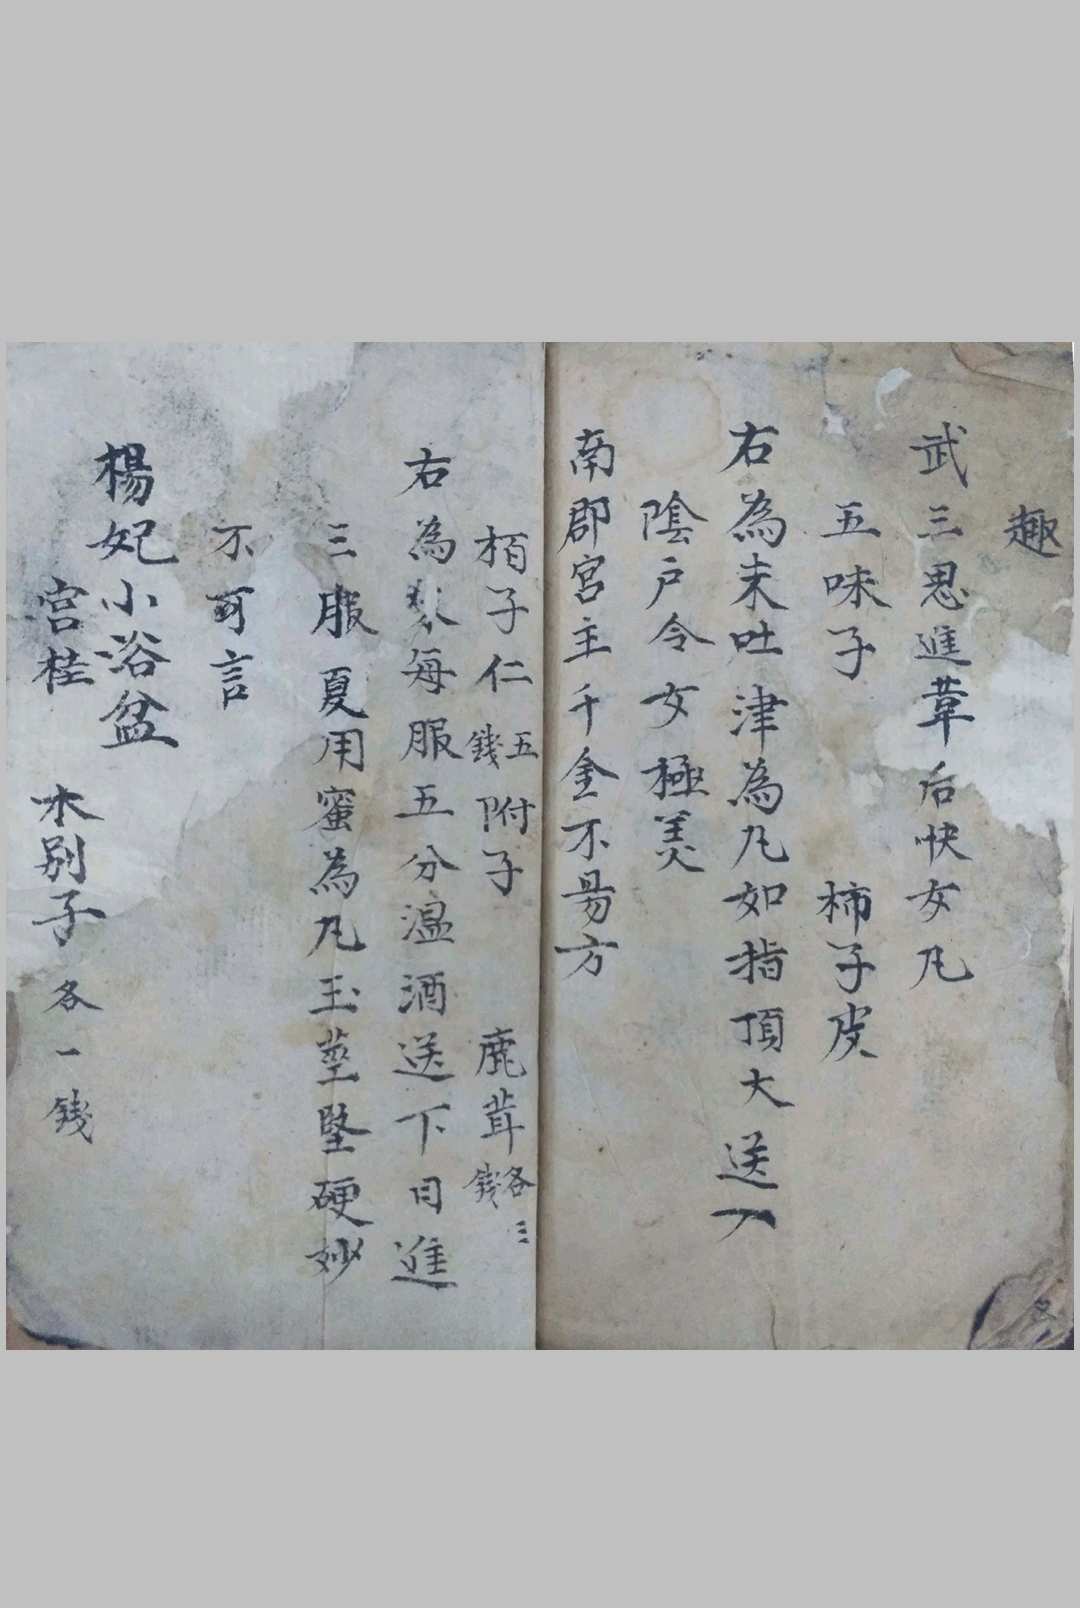 趣
武三思進葦后快女凡
五味子 柿子皮
右為末吐津為凡如指頂大送入
陰户令女極美
南郡宮主千金不昜方
栢子仁五錢附子 鹿茸各三錢
右為 每服五分溫酒送下日進
三服夏用蜜為凡玉莖堅硬妙
不可言
楊妃小浴盆
宮桂 木别子各一錢